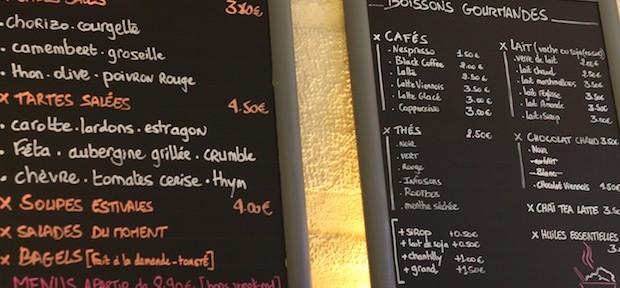 SALÉS
3.80€
• chorizo. courgette
• camembert. groseille
• thon. olive. poivron rouge
x TARTES SALÉES 4.50€
• carotte. lardons. estragon
• Féta. aubergine grillée. crumble
• chèvre. tomates cerise. thym
x SOUPES ESTIVALES 4.00€
x SALADES DU MOMENT
x BAGELS [fait à la demande-toasté]
MENUS À PARTIR DE 8.90€ [hors weekend]
BOISSONS GOURMANDES
x CAFÉS
. Nespresso 1.50€
. Black Coffee 2.00€
. Latte 2.50€
. Latte Viennois 3.50€
. Latte Glacé 3.00€
. Cappuccino 3.00€
x THÉS 2.50€
. Noir
. Vert
. Rouge
. Infusions
. Rooibos
. menthe séchée
+ sirop +0.50€
+ lait de soja +0.50€
+ chantilly +1.00€
+ grand +1.50€
x LAIT (vache ou soja)
. verre de lait 2.00€
. lait chaud 2.50€
. lait marshmallows 3.50€
. lait réglisse 3.50€
. lait Amande 3.50€
. lait + sirop 3.00€
x CHOCOLAT CHAUD 3.50€
. Noir
. Blanc
. Chocolat Viennois 4.50€
x CHAÏ TEA LATTE 3.50€
x HUILES ESSENTIELLES